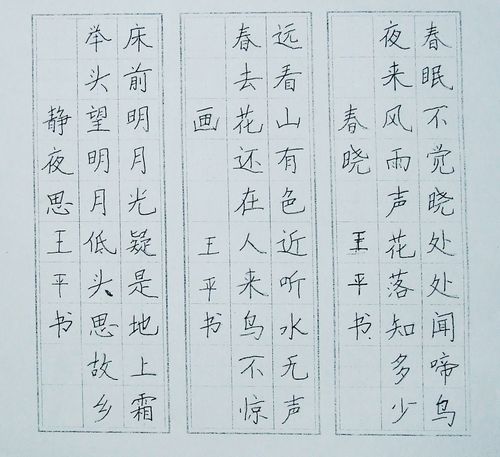 春眠不觉晓处处闻啼鸟
夜来风雨声花落知多少
春晓 王平书
远看山有色近听水无声
春去花还在人来鸟不惊
画 王平书
床前明月光疑是地上霜
举头望明月低头思故乡
静夜思 王平书